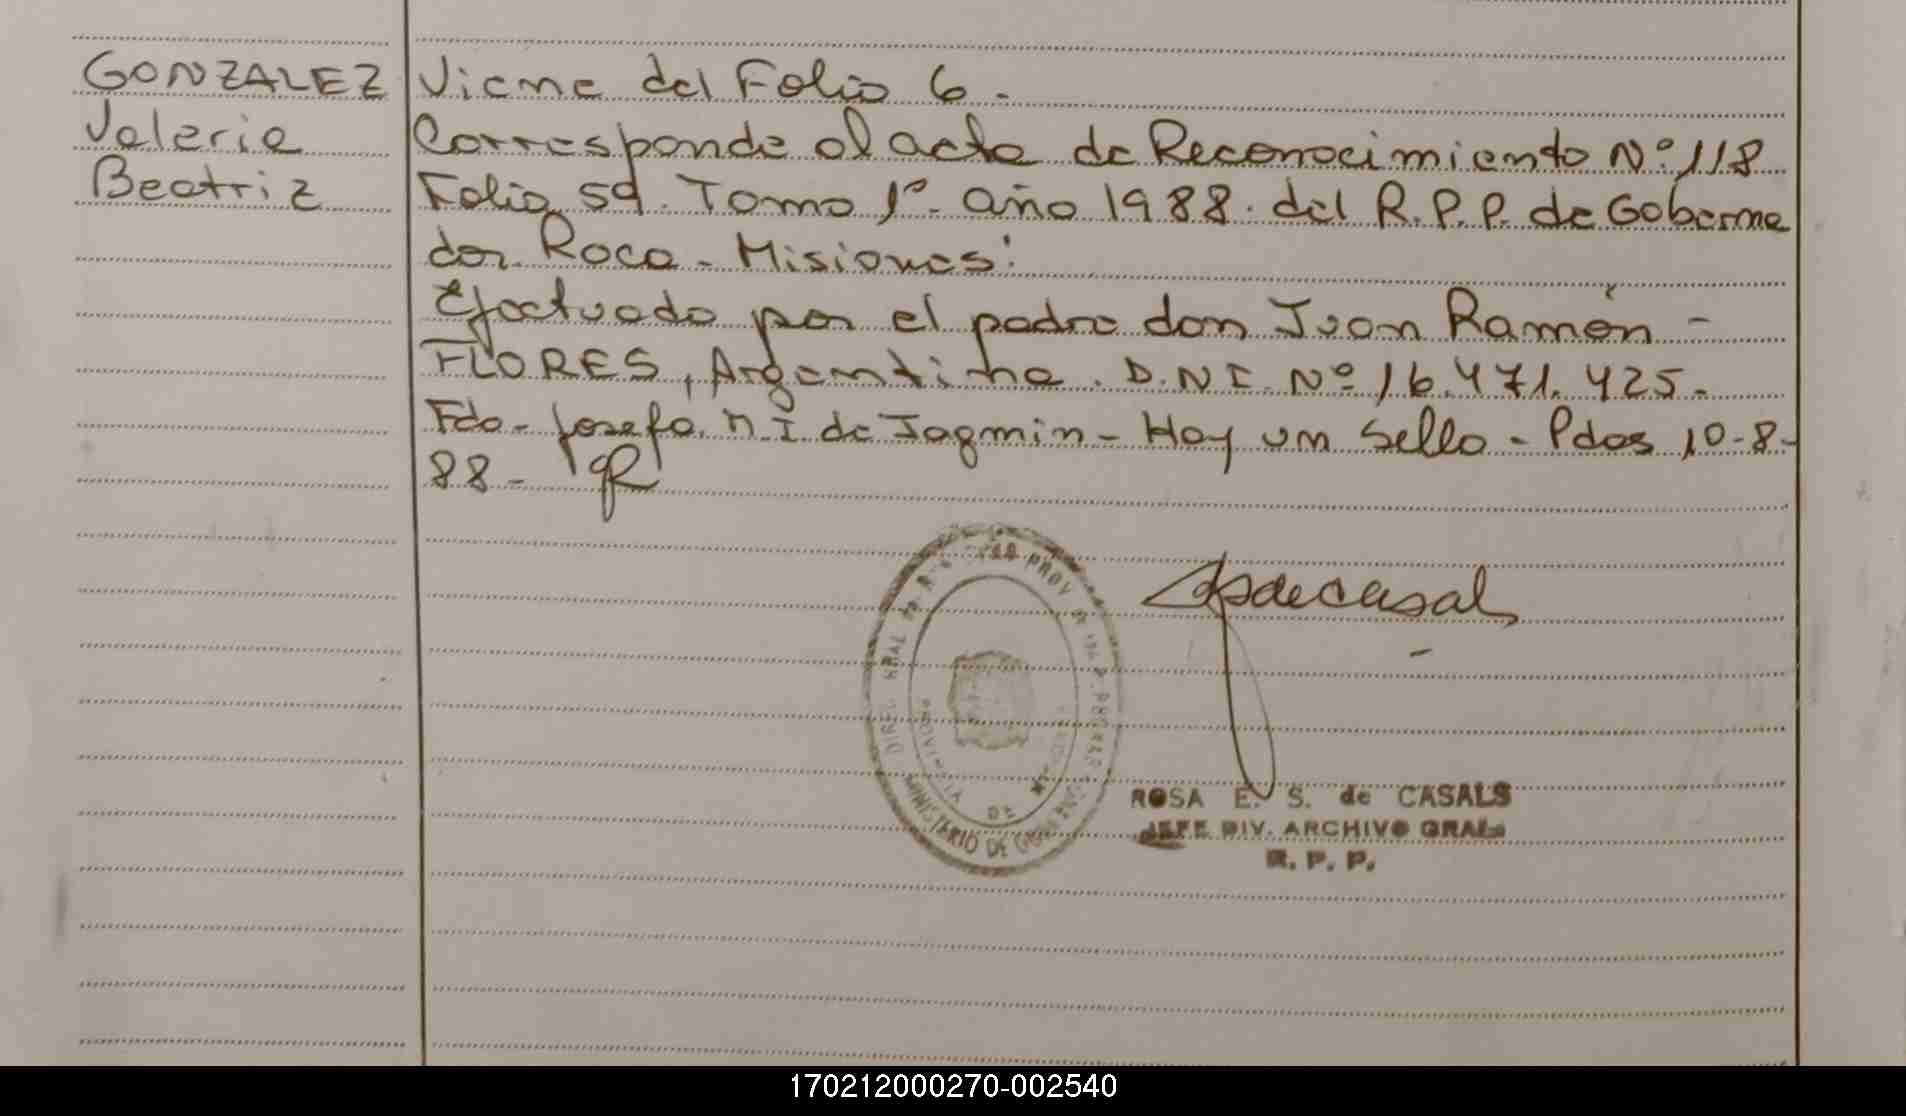 GONZALEZ
Valeria
Beatriz
Viene del Folio 6.
Corresponde al acta de Reconocimiento Nº 118
Folio 59. Tomo 1º. año 1988. del R.P.P. de Goberna
dor. Roca - Misiones:
Efectuado por el padre don Juan Ramón -
FLORES, Argentino. D.N.I. Nº 16.471.425.-
Fdo - Josefa. N. I de Jagmin - Hay un sello - Pdas 10-8-
88 -
PROV
MINISTERIO DE
PROVINCIA
DE
ROSA E. S. de CASALS
JEFE DIV. ARCHIVO GRAL.
R. P. P.
170212000270-002540